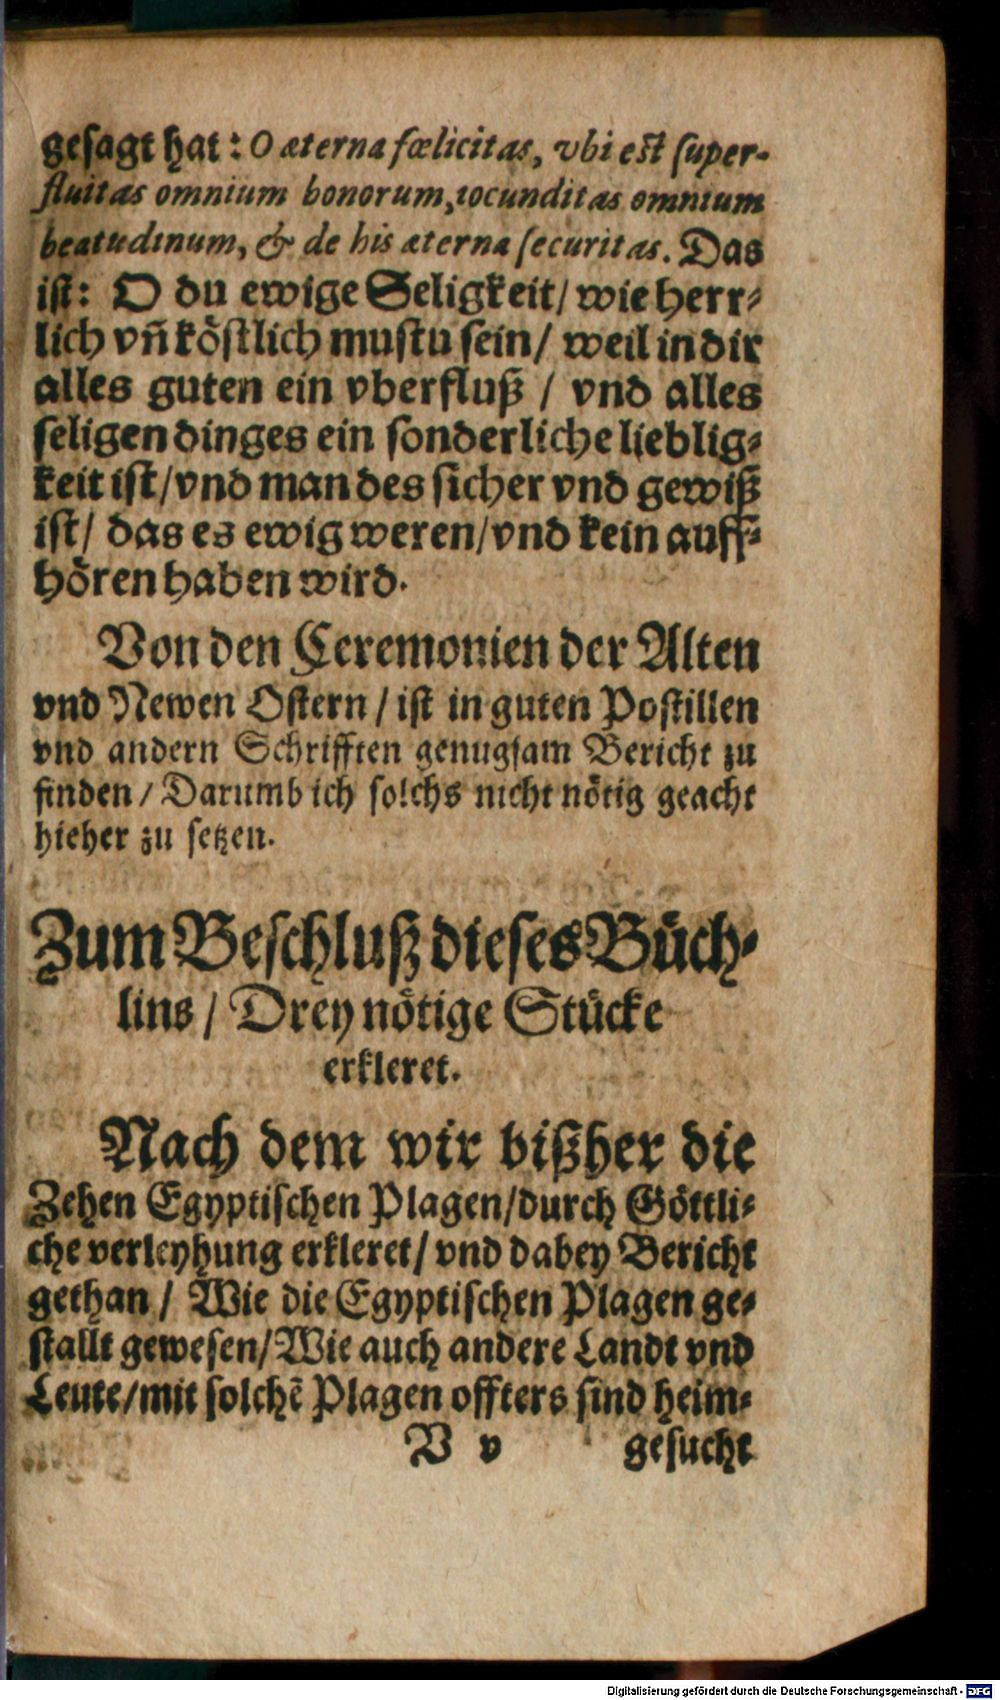 gesagt hat: O æterna fœlicitas, vbi est super-
fluitas omnium bonorum, iocunditas omnium
beatudinum, & de his æterna securitas. Das
ist: O du ewige Seligkeit/ wie herr-
lich vñ köstlich mustu sein/ weil in dir
alles guten ein vberfluß / vnd alles
seligen dinges ein sonderliche lieblig-
keit ist/vnd man des sicher vnd gewiß
ist/ das es ewig weren/vnd kein auff-
hören haben wird.
Von den Ceremonien der Alten
vnd Newen Ostern / ist in guten Postillen
vnd andern Schrifften genugsam Bericht zu
finden / Darumb ich solchs nicht nötig geacht
hieher zu setzen.
Zum Beschluß dieses Büch-
lins / Drey nötige Stücke
erkleret.
Nach dem wir bißher die
Zehen Egyptischen Plagen/durch Göttli-
che verleyhung erkleret/ vnd dabey Bericht
gethan / Wie die Egyptischen Plagen ge-
stallt gewesen/Wie auch andere Landt vnd
Leute/mit solchē Plagen offters sind heim-
V v gesucht
Digitalisierung gefördert durch die Deutsche Forschungsgemeinschaft - DFG